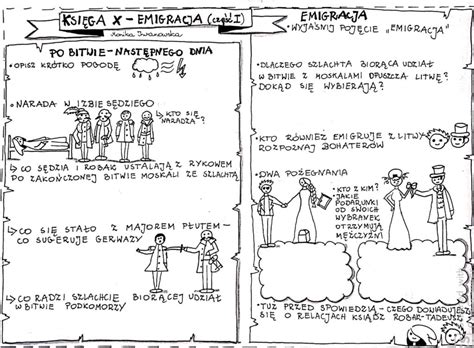 KSIĘGA X - EMIGRACJA (część I)
Monika Iwanowska
PO BITWIE - NASTĘPNEGO DNIA
• OPISZ KRÓTKO POGODĘ
• NARADA W IZBIE SĘDZIEGO
↳ KTO SIĘ
NARADZA?
↳ CO SĘDZIA I ROBAK USTALAJĄ Z RYKOWEM
PO ZAKOŃCZONEJ BITWIE MOSKALI ZE SZLACHTĄ
↳ CO SIĘ STAŁO Z MAJOREM PŁUTEM -
CO SUGERUJE GERWAZY
↳ CO RADZI SZLACHCIE BIORĄCEJ UDZIAŁ
W BITWIE PODKOMORZY
EMIGRACJA
• WYJAŚNIJ POJĘCIE „EMIGRACJA"
• DLACZEGO SZLACHTA BIORĄCA UDZIAŁ
W BITWIE Z MOSKALAMI OPUSZCZA LITWĘ?
DOKĄD SIĘ WYBIERAJĄ?
• KTO RÓWNIEŻ EMIGRUJE Z LITWY
ROZPOZNAJ BOHATERÓW
• DWA POŻEGNANIA
• KTO Z KIM?
JAKIE
PODARUNKI
OD SWOICH
WYBRANEK
OTRZYMUJĄ
MĘŻCZYŹNI
• TUŻ PRZED SPOWIEDZIĄ - CZEGO DOWIADUJESZ
SIĘ O RELACJACH KSIĄDZ ROBAK-TADEUSZ